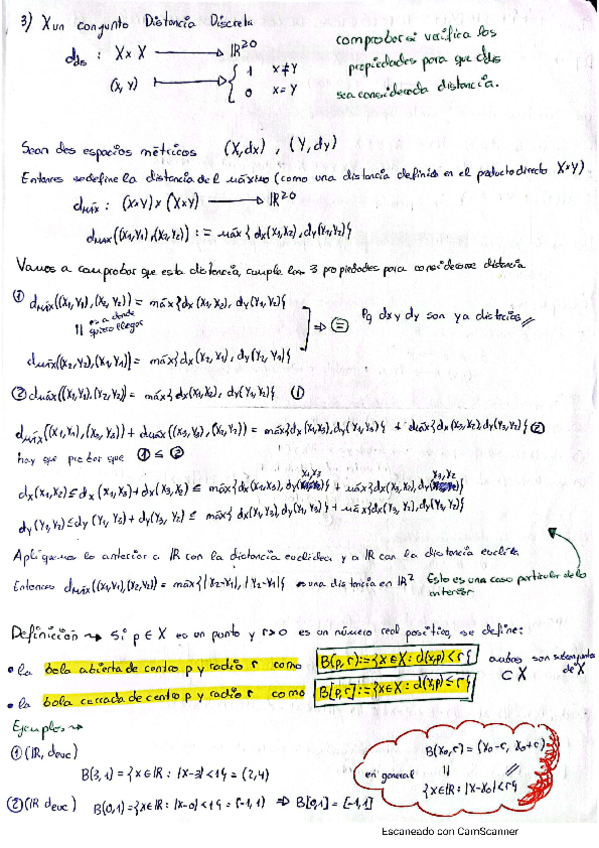 3) X un conjunto Distancia Discreta
d_dis : X × X → ℝ^≥0
(x, y) ↦ { 1 x ≠ y
0 x = y
comprobar si verifica las
propiedades para que d_dis
sea considerada distancia.
Sean dos espacios métricos (X, dx), (Y, dy)
Entonces se define la distancia del máximo (como una distancia definida en el producto directo X×Y)
d_máx : (X×Y) × (X×Y) → ℝ^≥0
d_máx((x₁,y₁),(x₂,y₂)) := máx{dx(x₁,x₂), dy(y₁,y₂)}
Vamos a comprobar que esta distancia, cumple las 3 propiedades para considerarse distancia
① d_máx((x₁,y₁),(x₂,y₂)) = máx{dx(x₁,x₂), dy(y₁,y₂)}
|| es a donde
quiero llegar
⇒ ⊜ Pq dx y dy son ya distancias //
d_máx((x₂,y₂),(x₁,y₁)) = máx{dx(x₂,x₁), dy(y₂,y₁)}
② d_máx((x₁,y₁),(x₂,y₂)) = máx{dx(x₁,x₂), dy(y₁,y₂)} ①
d_máx((x₁,y₁),(x₃,y₃)) + d_máx((x₃,y₃),(x₂,y₂)) = máx{dx(x₁,x₃), dy(y₁,y₃)} + máx{dx(x₃,x₂), dy(y₃,y₂)} ②
hay que probar que ① ≤ ②
y₁,y₃ y₃,y₂
dx(x₁,x₂) ≤ dx(x₁,x₃) + dx(x₃,x₂) ≤ máx{dx(x₁,x₃), dy( )} + máx{dx(x₃,x₂), dy( )}
dy(y₁,y₂) ≤ dy(y₁,y₃) + dy(y₃,y₂) ≤ máx{dx(x₁,x₃), dy(y₁,y₃)} + máx{dx(x₃,x₂), dy(y₃,y₂)}
Apliquemos lo anterior a ℝ con la distancia euclídea y a ℝ con la distancia euclídea
Entonces d_máx((x₁,y₁),(x₂,y₂)) = máx{|x₂-x₁|, |y₂-y₁|} es una distancia en ℝ² Esto es una caso particular de lo
anterior
Definición ⇝ Si p ∈ X es un punto y r>0 es un número real positivo, se define:
• la bola abierta de centro p y radio r como B(p,r):={x∈X: d(x,p)<r} ambas son subconjuntos
⊂ X de X
• la bola cerrada de centro p y radio r como B[p,r]:={x∈X: d(x,p)≤r}
Ejemplos ⇝
① (ℝ, deuc)
B(3,1) = {x∈ℝ: |x-3|<1} = (2,4)
en general
B(x₀,r) = (x₀-r, x₀+r)
|| //
{x∈ℝ: |x-x₀|<r}
② (ℝ deuc) B(0,1) = {x∈ℝ: |x-0|<1} = (-1,1) ⇒ B[0,1] = [-1,1]
Escaneado con CamScanner